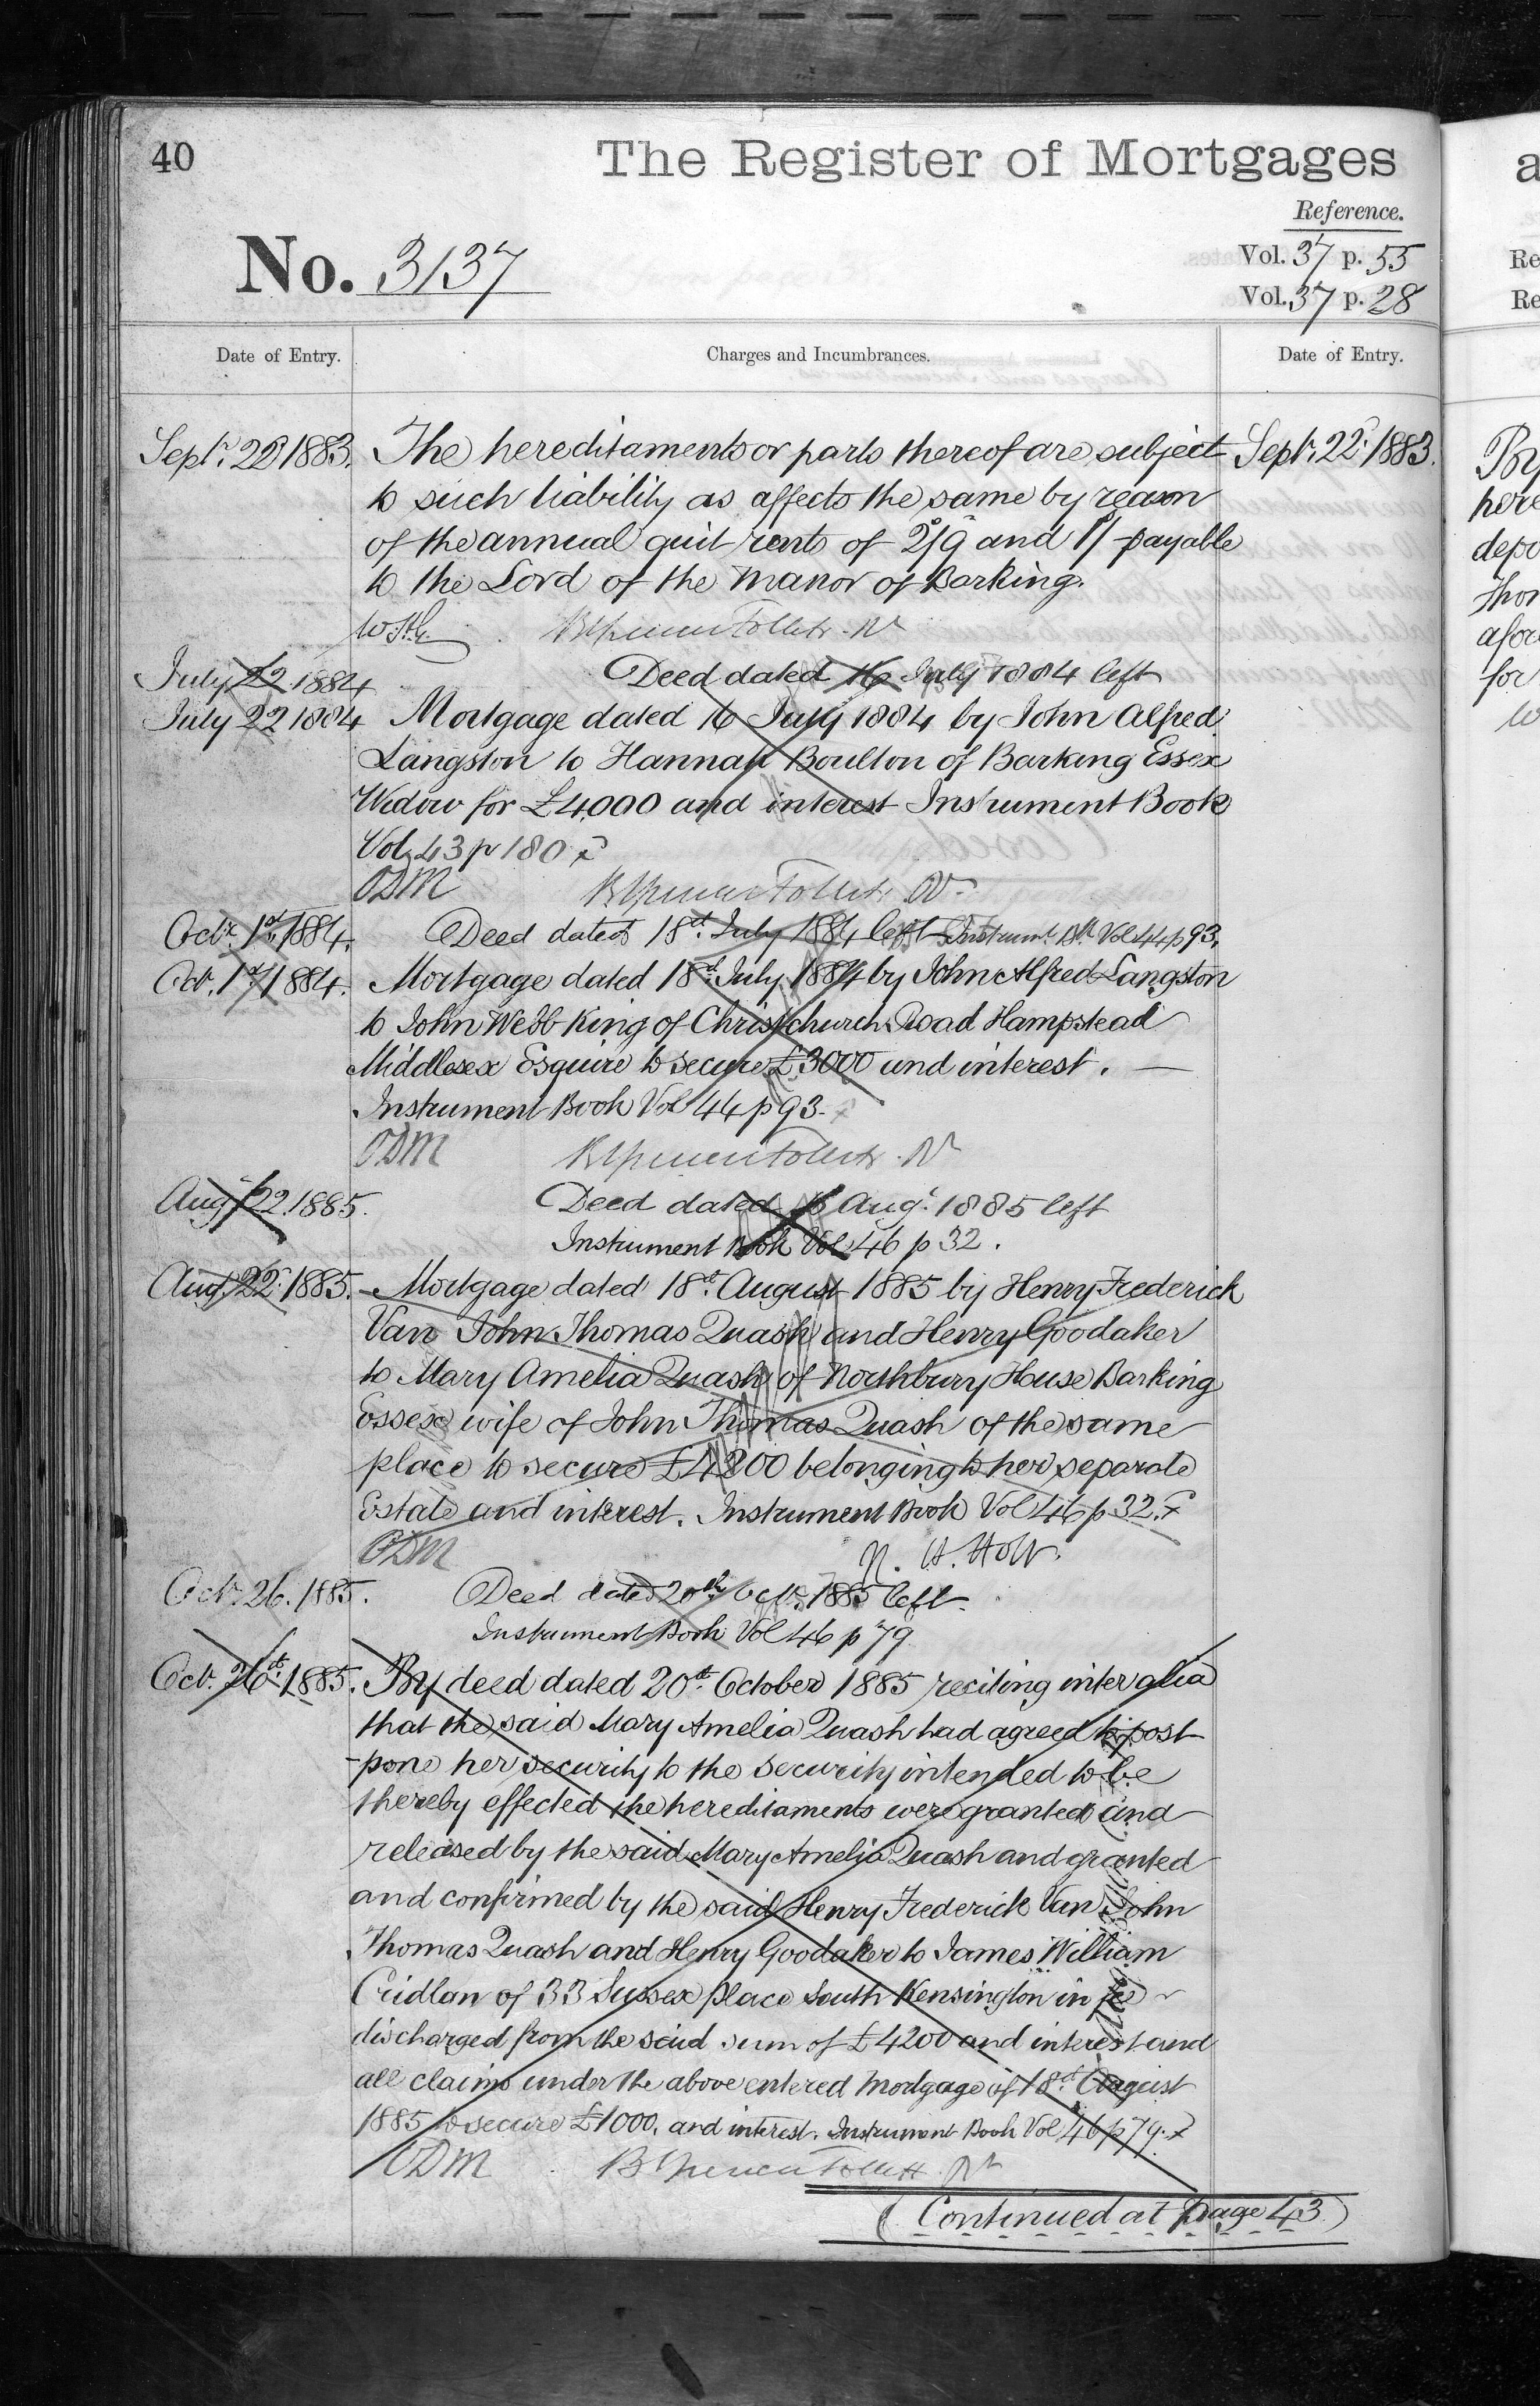 40
The Register of Mortgages
Reference.
No. 3137
Vol. 37 p. 55
Vol. 37 p. 28
Date of Entry.
Charges and Incumbrances.
Date of Entry.
Sept. 22 1883. The hereditaments or parts thereof are subject Sept. 22 1883.
to such liability as affects the same by reason
of the annual quit rents of 2/9 and 1/ payable
to the Lord of the Manor of Barking.
July 22 1884 Deed dated 16 July 1884 left
July 22 1884 Mortgage dated 16 July 1884 by John Alfred
Langston to Hannah Boulton of Barking Essex
Widow for £4,000 and interest Instrument Book
Vol 43 p 180
ODM
Oct. 1st 1884. Deed dated 18th July 1884 left Instrumt. Bk Vol 44 p 93.
Oct. 1st 1884. Mortgage dated 18th July 1884 by John Alfred Langston
to John Webb King of Christchurch Road Hampstead
Middlesex Esquire to secure £3000 and interest. —
Instrument Book Vol 44 p 93.
ODM
Aug. 22. 1885. Deed dated Augt. 1885 left
Instrument Book Vol 46 p 32.
Aug. 22. 1885. Mortgage dated 18th August 1885 by Henry Frederick
Van John Thomas Quash and Henry Goodaker
to Mary Amelia Quash of Northbury House Barking
Essex wife of John Thomas Quash of the same
place to secure £4200 belonging to her separate
Estate and interest. Instrument Book Vol 46 p 32.
ODM
Oct. 26. 1885. Deed dated 20th Oct. 1885 left.
Instrument Book Vol 46 p 79
Oct. 26th 1885. By deed dated 20th October 1885 reciting inter alia
that the said Mary Amelia Quash had agreed to post
-pone her security to the security intended to be
thereby effected the hereditaments were granted and
released by the said Mary Amelia Quash and granted
and confirmed by the said Henry Frederick Van John
Thomas Quash and Henry Goodaker to James William
Cridlan of 33 Sussex place South Kensington in fee
discharged from the said sum of £4200 and interest and
all claims under the above entered Mortgage of 18th August
1885 to secure £1000. and interest. Instrument Book Vol 46 p 79.
ODM
(Continued at page 43)
a
Re
Re
By
here
depo
Thor
afor
for